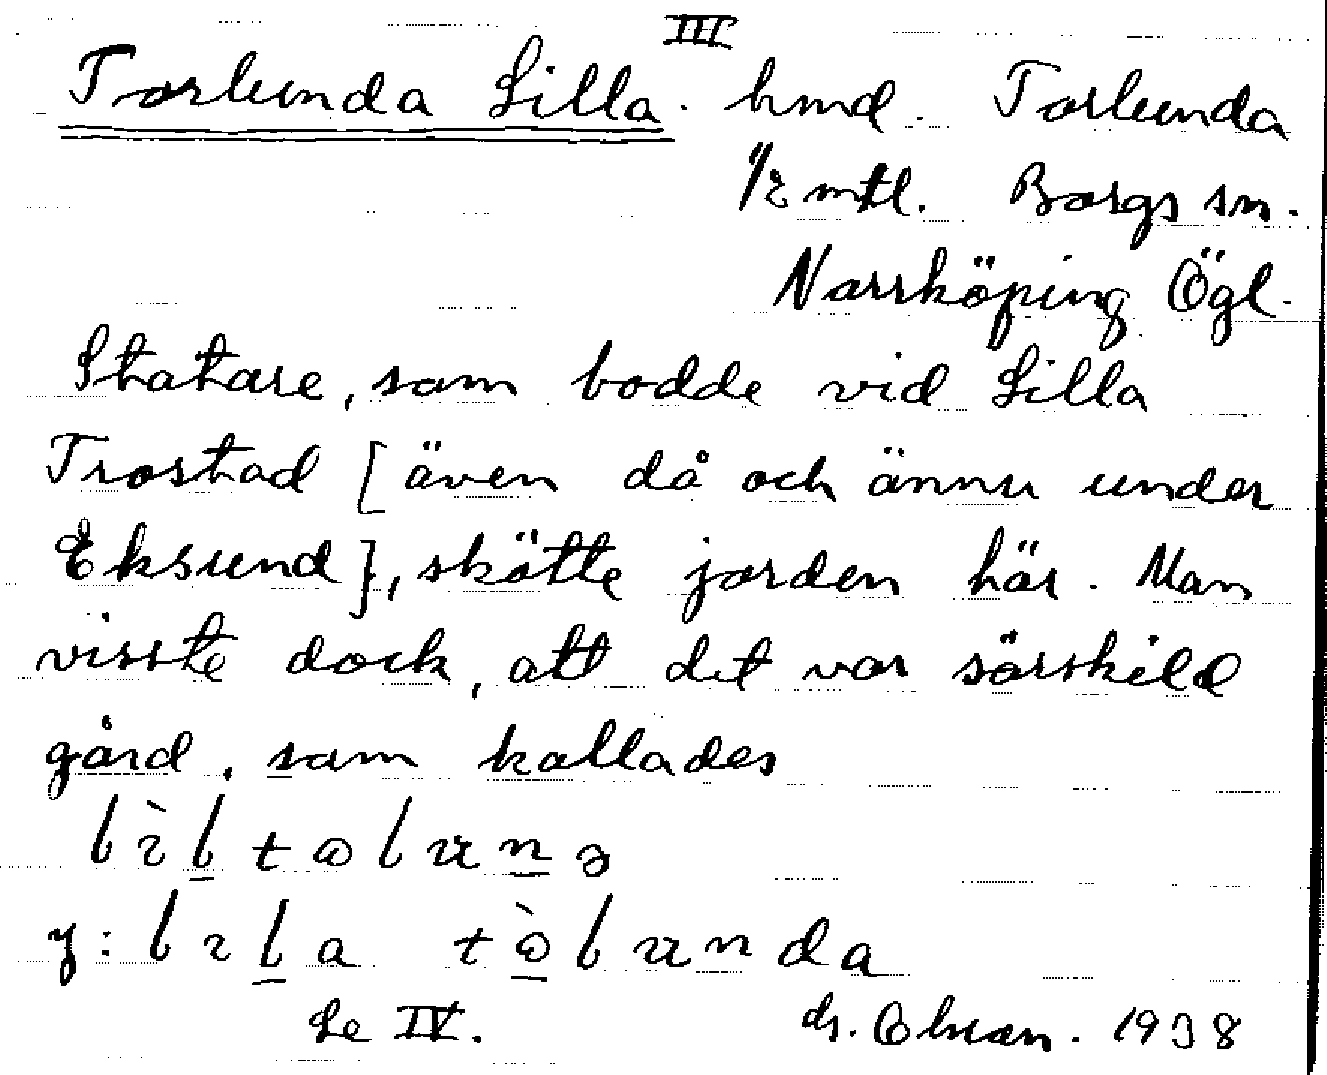 III
Torlunda Lilla. hmd. Torlunda
1/2 mtl. Borgs sn.
Norrköping Ögl.
Statare, som bodde vid Lilla
Trostad [även då och ännu under
Eksund], skötte jorden här. Man
visste dock, att det var särskild
gård, som kallades
y:
Se IV. 1938